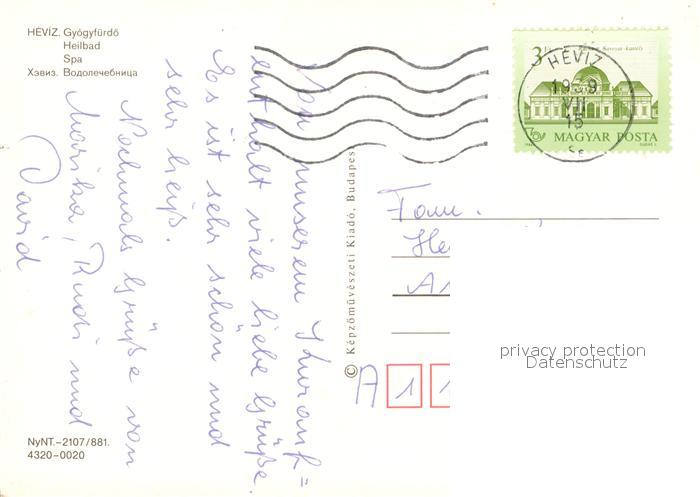 HÉVÍZ. Gyógyfürdő
Heilbad
Spa
Хэвиз. Водолечебница
Von unserem Kurauf=
enthalt viele liebe Grüße.
Es ist sehr schön und
sehr heiß.
Nochmals Grüße von
Marika, Rudi und
David
NyNT.–2107/881.
4320–0020
© Képzőművészeti Kiadó, Budapest
3 Ft
MAGYAR POSTA
HÉVÍZ
VII
15
Fam.
He
A 1 1
privacy protection
Datenschutz